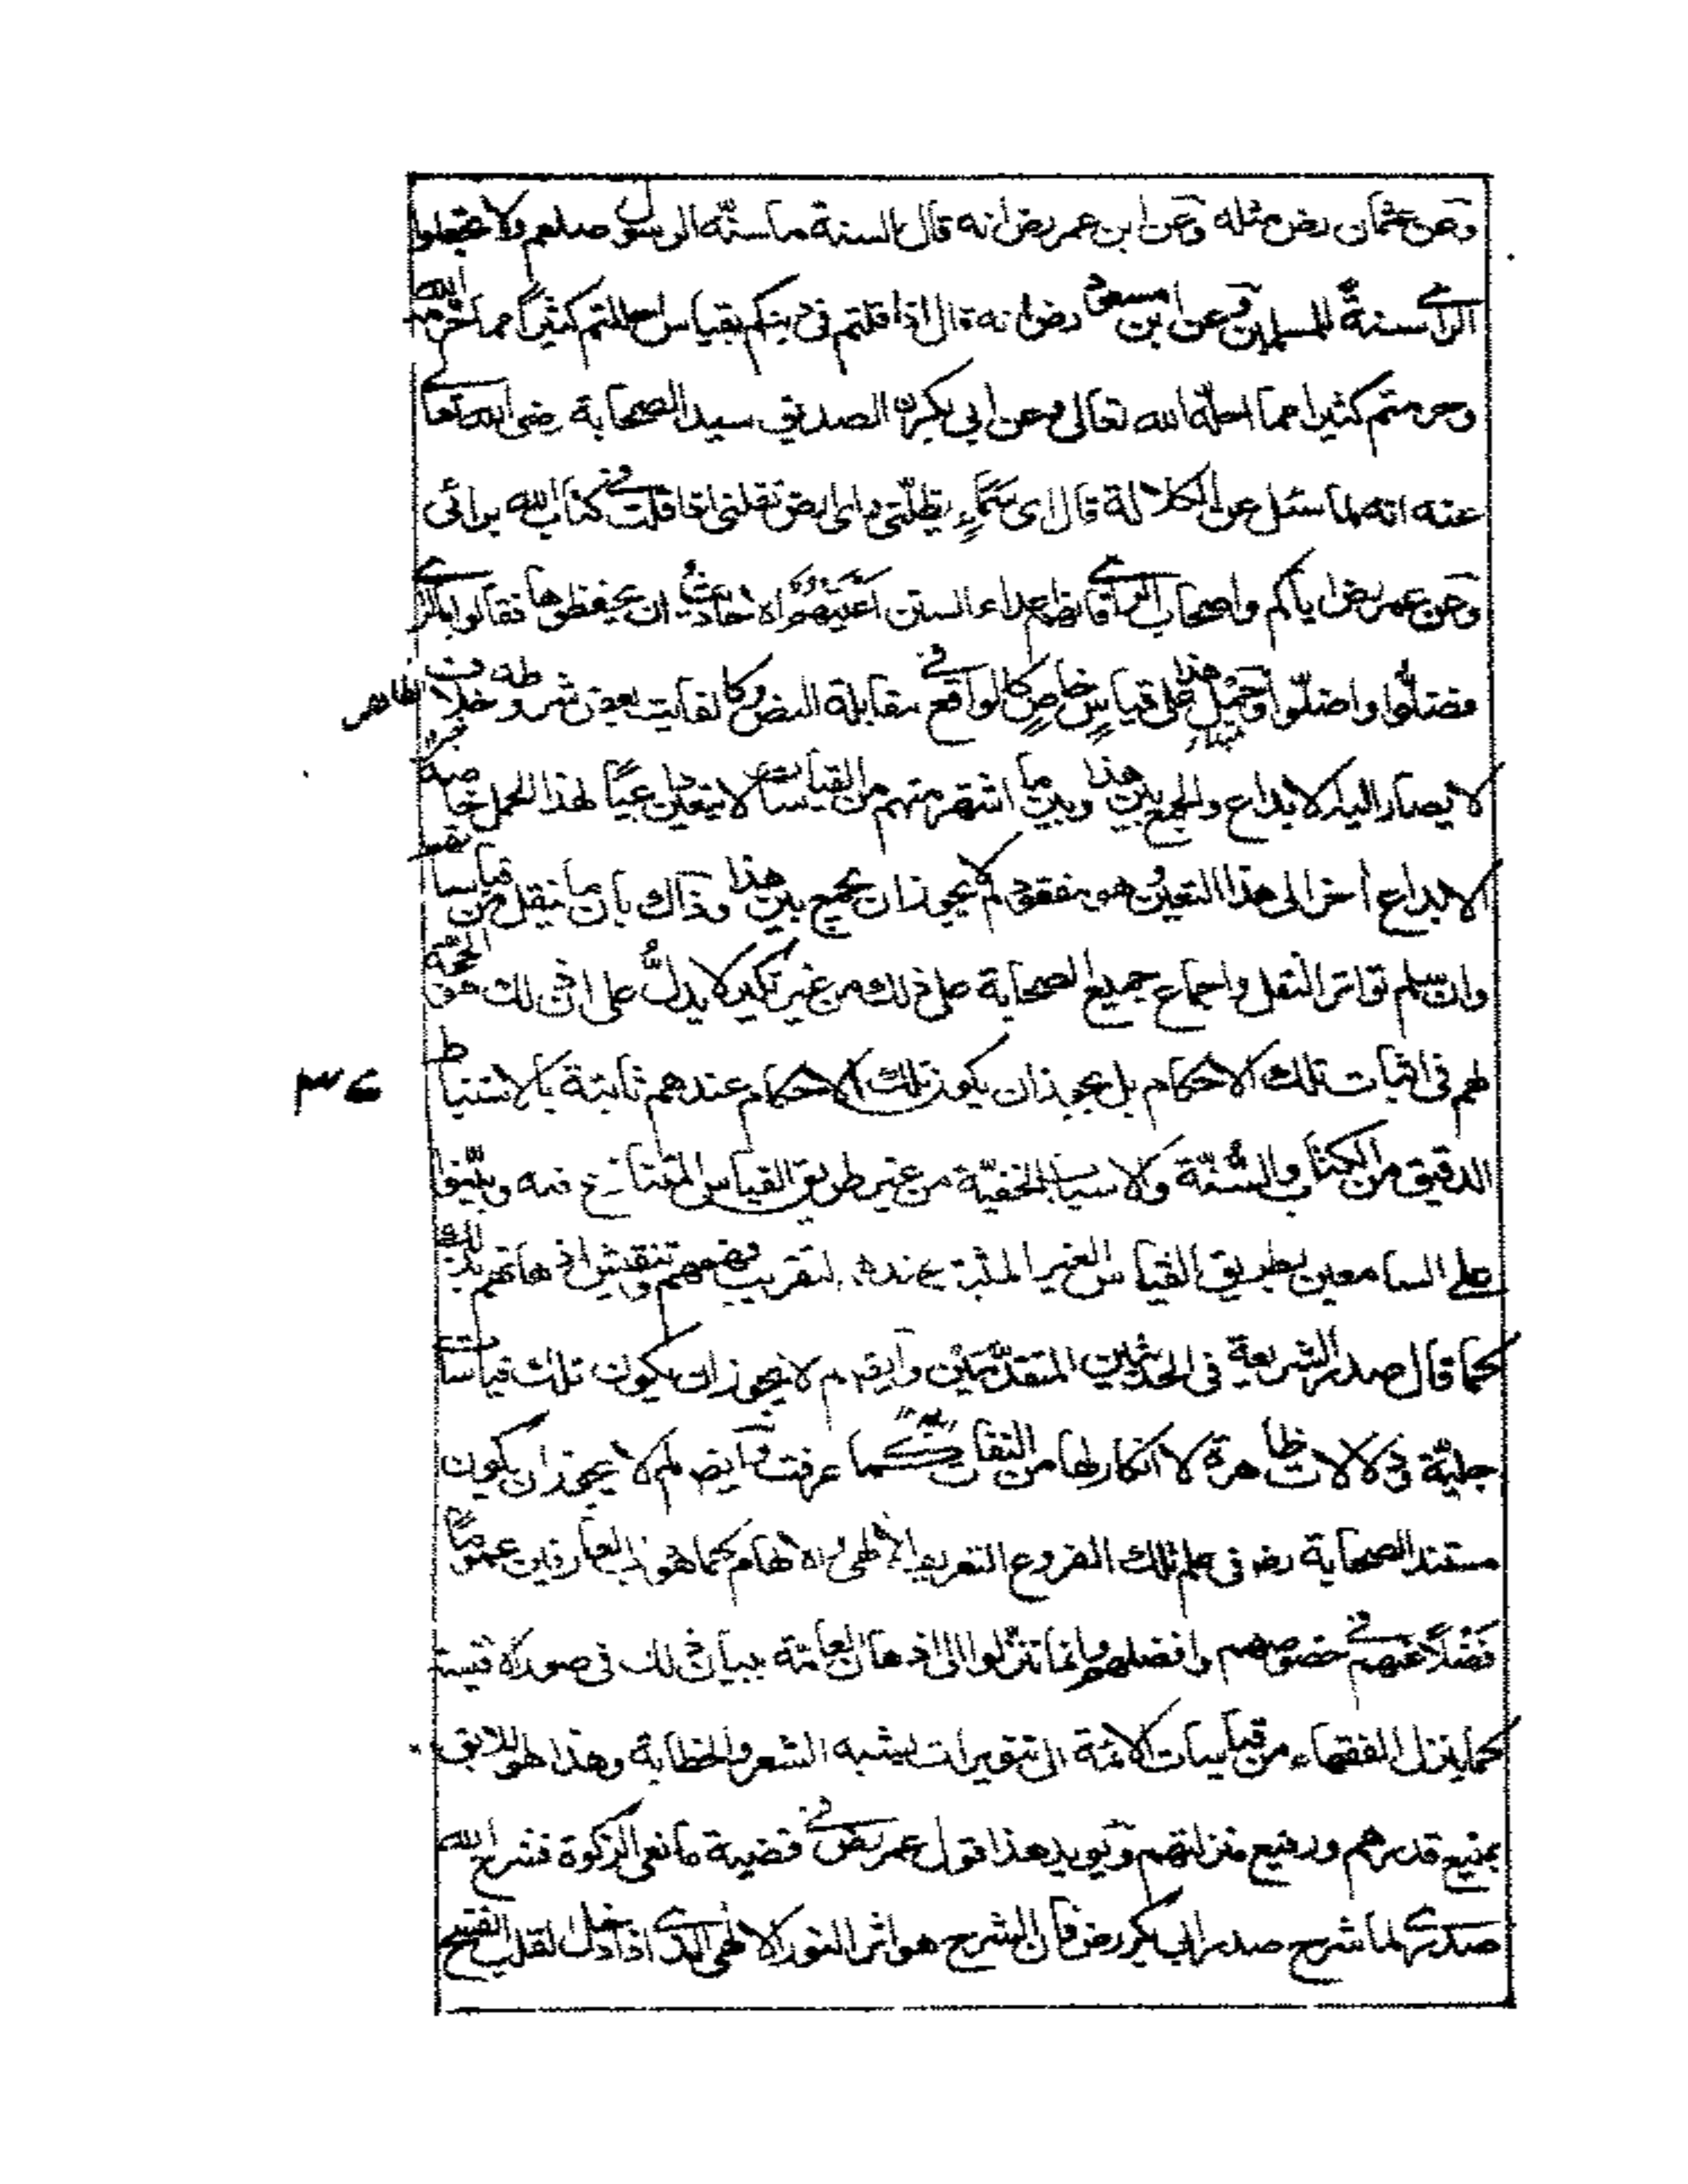 وعن عثمان رض مثله وعن ابن عمر رض انه قال السنة ما سنّه الرسول صلعم ولا تجعلوا
الرأي سنةً للمسلمين وعن ابن مسعود رض انه قال اذا قلتم في دينكم بقياس احللتم كثيراً مما حرّمه الله
وحرمتم كثيرا مما احلّه الله تعالى وعن ابي بكر ن الصديق سيد الصحابة رضي الله تعالى
عنه انه لما سئل عن الكلالة قال اى سَمَاءٍ يظلّني واى ارض تقلني اذا قلت في كتاب الله برائى
وعن عمر رض اياكم واصحاب الرأي فانهم اعداء السنن اَعْيَتْهُم الاحاديث ان يحفظوها فقالوا بالرأي
فضلّوا واضلّوا وحَمْل هذا على قياسٍ خاصٍ كالواقع في مقابلة النص وكالفايت بعض شروطه خلاف الظاهر
لا يصار اليه لا بداع والجمع بين هذا وبين ما اشتهر منهم من القياسات لا يتعين عيبًا لهذا الحمل خاصة
الا بداع اخر الى هذا التعين هو مفقود لم لا يجوز ان يجمع بين هذا وذاك بان ما نقل من قياسا
وان سلم تواتر النقل واجماع جميع الصحابة على ذلك من غير نكير لا يدلُّ على ان ذلك هو الحجة
لهم في اثبات تلك الاحكام بل يجوز ان يكون تلك الاحكام عندهم ثابتة بالاستنباط
٣٤
الدقيق من الكتاب والسُّنّة والاسباب الخفيّة من غير طريق القياس المتنازع فيه وبيّنوا
على السامعين بطريق القياس الغير المثبت عنده لتقريب فهمهم وتنقيش اذهانهم بذلك
كما قال صدر الشريعة في الحديثين المتقدّمَيْن وايضم لم لا يجوز ان يكون تلك قياسات
جليّة ودلالات ظاهرة لا انكار لها من النفات كما عرفت وايض لم لا يجوز ان يكون
مستند الصحابة رض في علم تلك الفروع التعريف الالهى والالهام كما هو داب العارفين عمومًا
فَضْلًا عنهم في خصوصهم وافضلهم وانما تنزّلوا الى اذهان العامّة ببيان ذلك في صورة قيسة
كما ينزل الفقهاء من قياسات الائمة الى تنويرات يشبه الشعر والخطابة وهذا هو اللايق
بمنيع قدرهم ورفيع منزلتهم ويويد هذا قول عمر رض في قضية مانعى الزكوة فشرح الله
صدري لما شرح صدر ابي بكر رض فان الشرح هو اثر النور الالهى الذي اذا دخل القلب انفسح